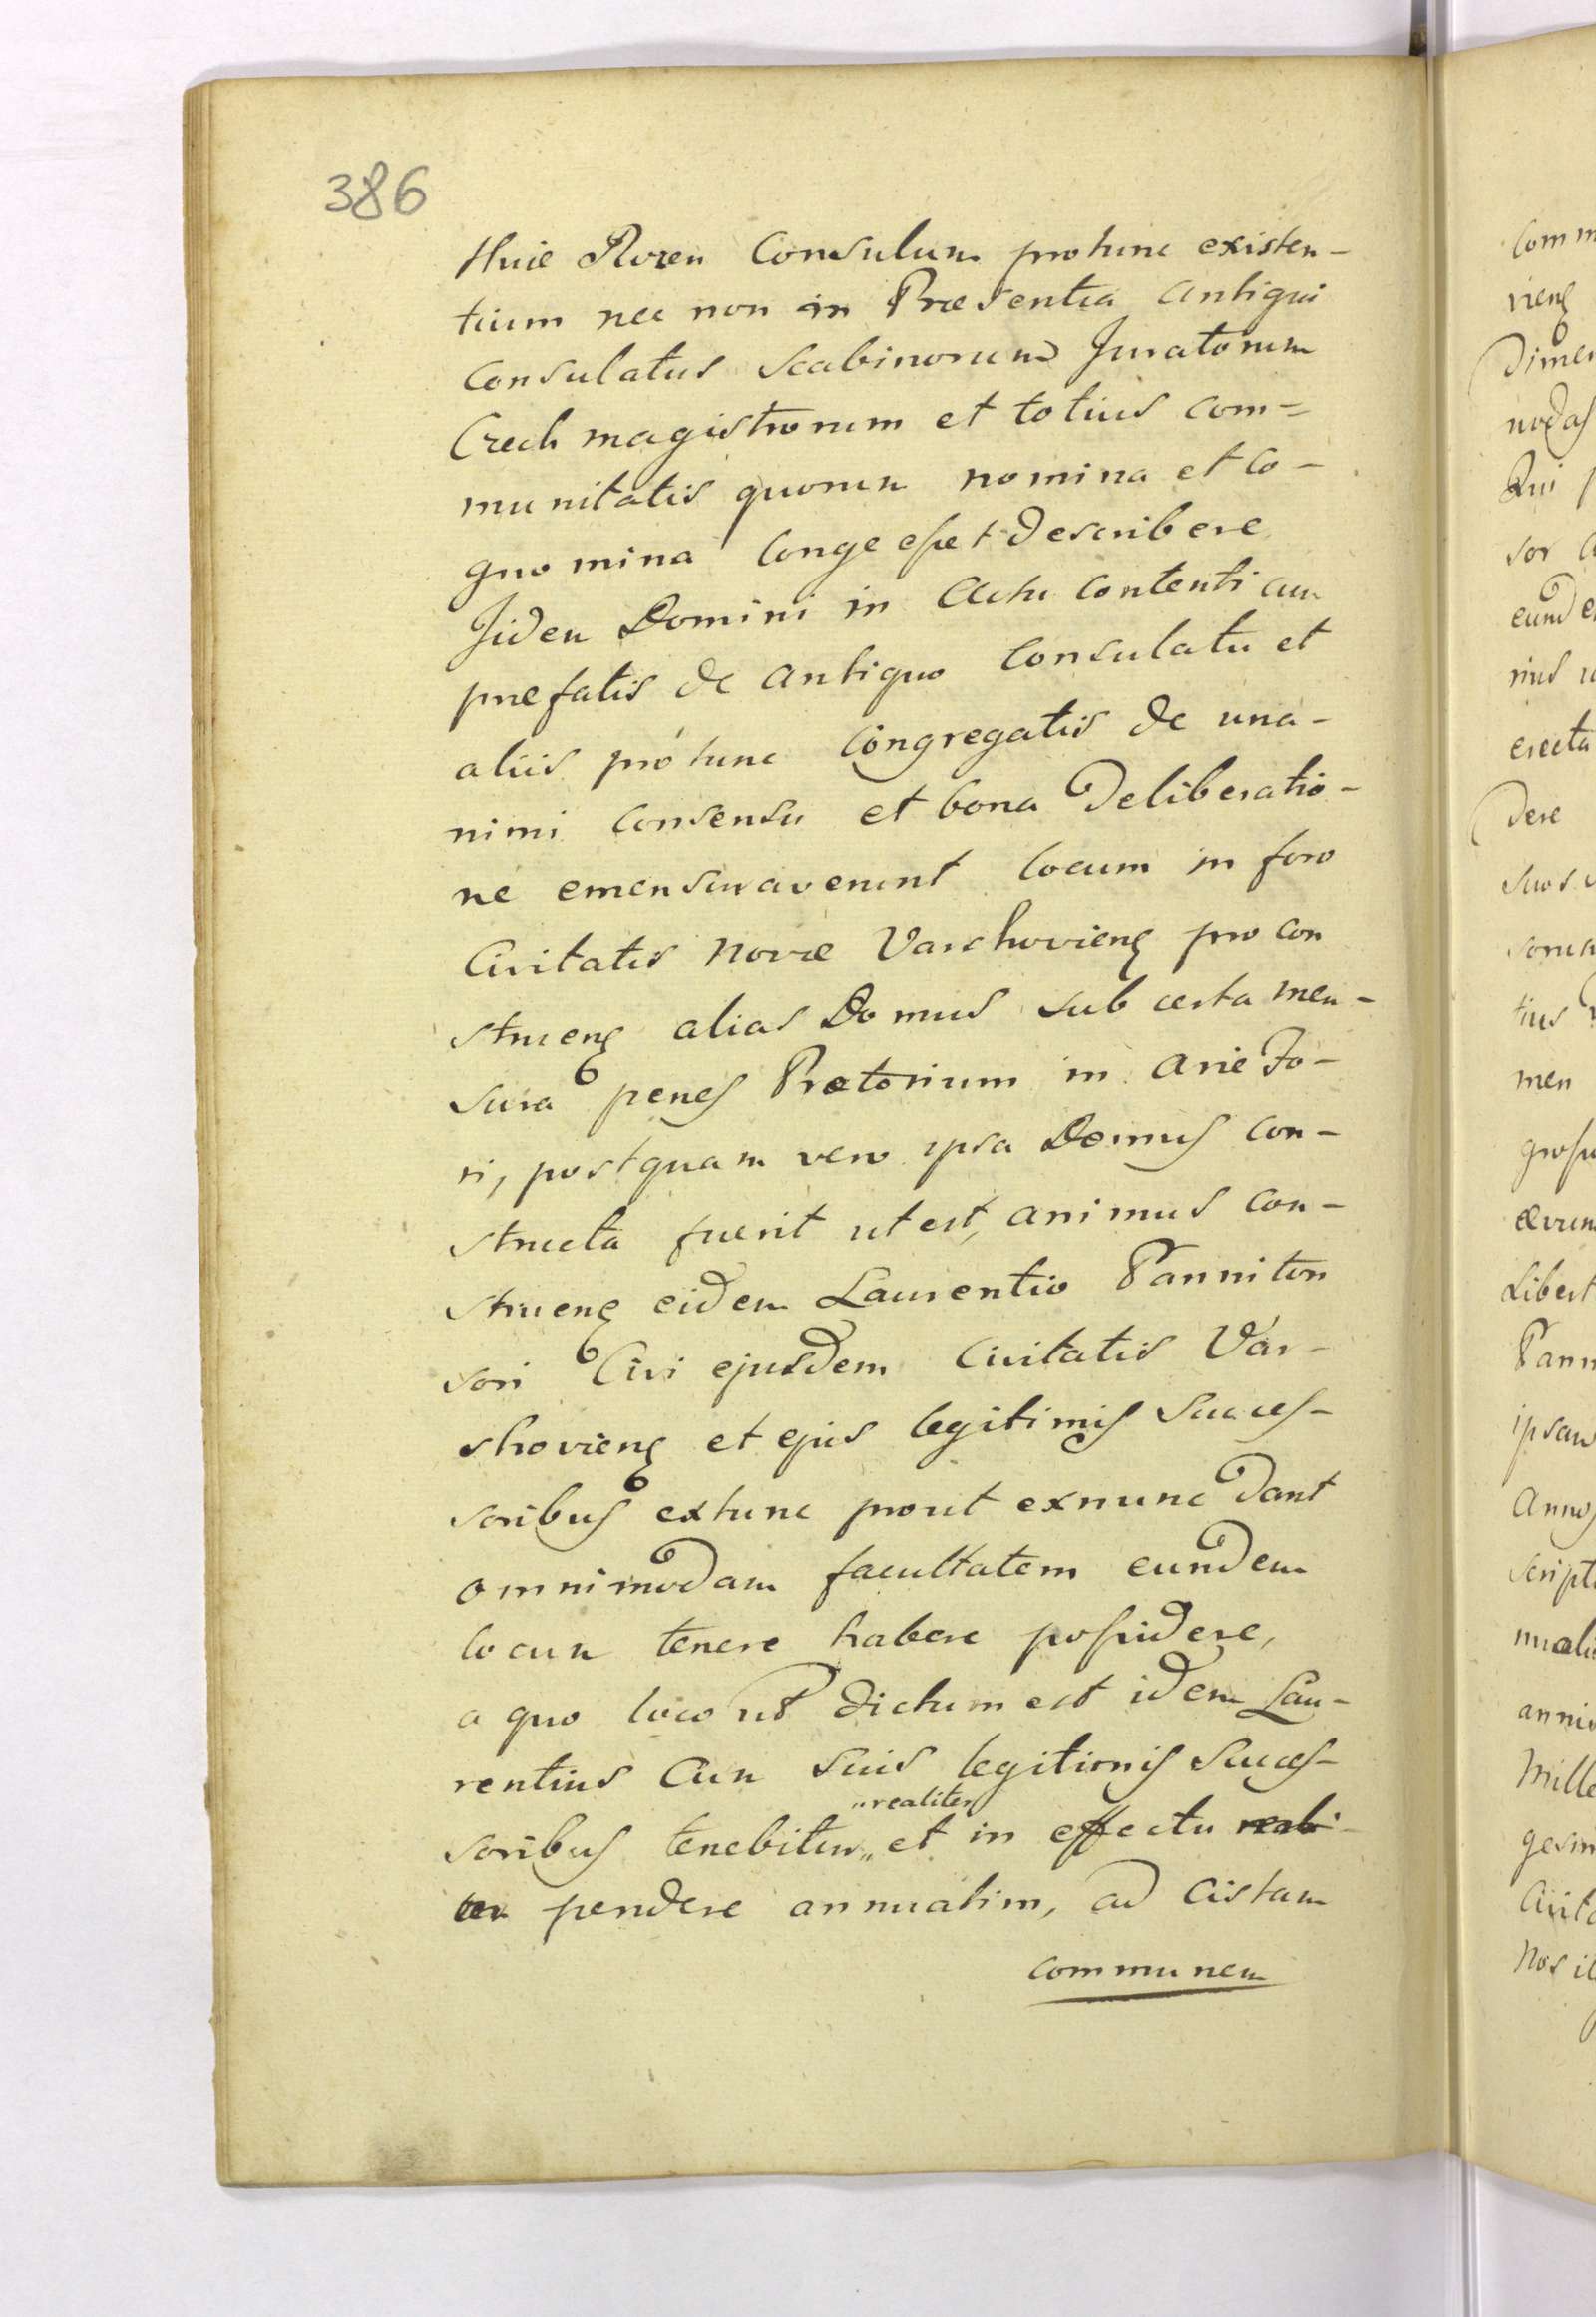 386
Huie Rozen Consulum protunc existen-
tium nec non in Præsentia Antiqui
Consulatus Scabinorum Juratorum
Czech magistrorum et totius com=
munitatis quorum nomina et Co-
gno mina longe esset describere
Jidem Domini in Actu Contenti cum
prefatis de Antiquo Consulatu et
aliis pro tunc Congregatis de una-
nimi Consensu et bona deliberatio-
ne emensuraverunt locum in foro
Civitatis Novæ Varschovieng pro con
strueng alias Domus sub certa men-
sura penes Prætorium in Arie Fo-
ri, postquam vero ipsa Domus con-
structa fuerit ut est, animus con-
strueng eidem Laurentio Panniton
sori Civi ejusdem Civitatis Var-
shovieng et ejus legitimis Succes-
soribus extunc prout exnunc dant
omnimodam facultatem eundem
locum tenere habere possidere,
a quo loco ut dictum est idem Lau-
rentius Cum suis legitimis Succes-
"realiter
soribus tenebitur „ et in effectu reali-
ter pendere annuatim, ad Cistam
communem
Comm
vieng
dimen
nodas
Qui
sor
eunde
rius
erecta
dere
suos
tius
men
ævum
Libert
Pann
ipsam
Annos
script
annu
Mille
gesim
Civita
Nos